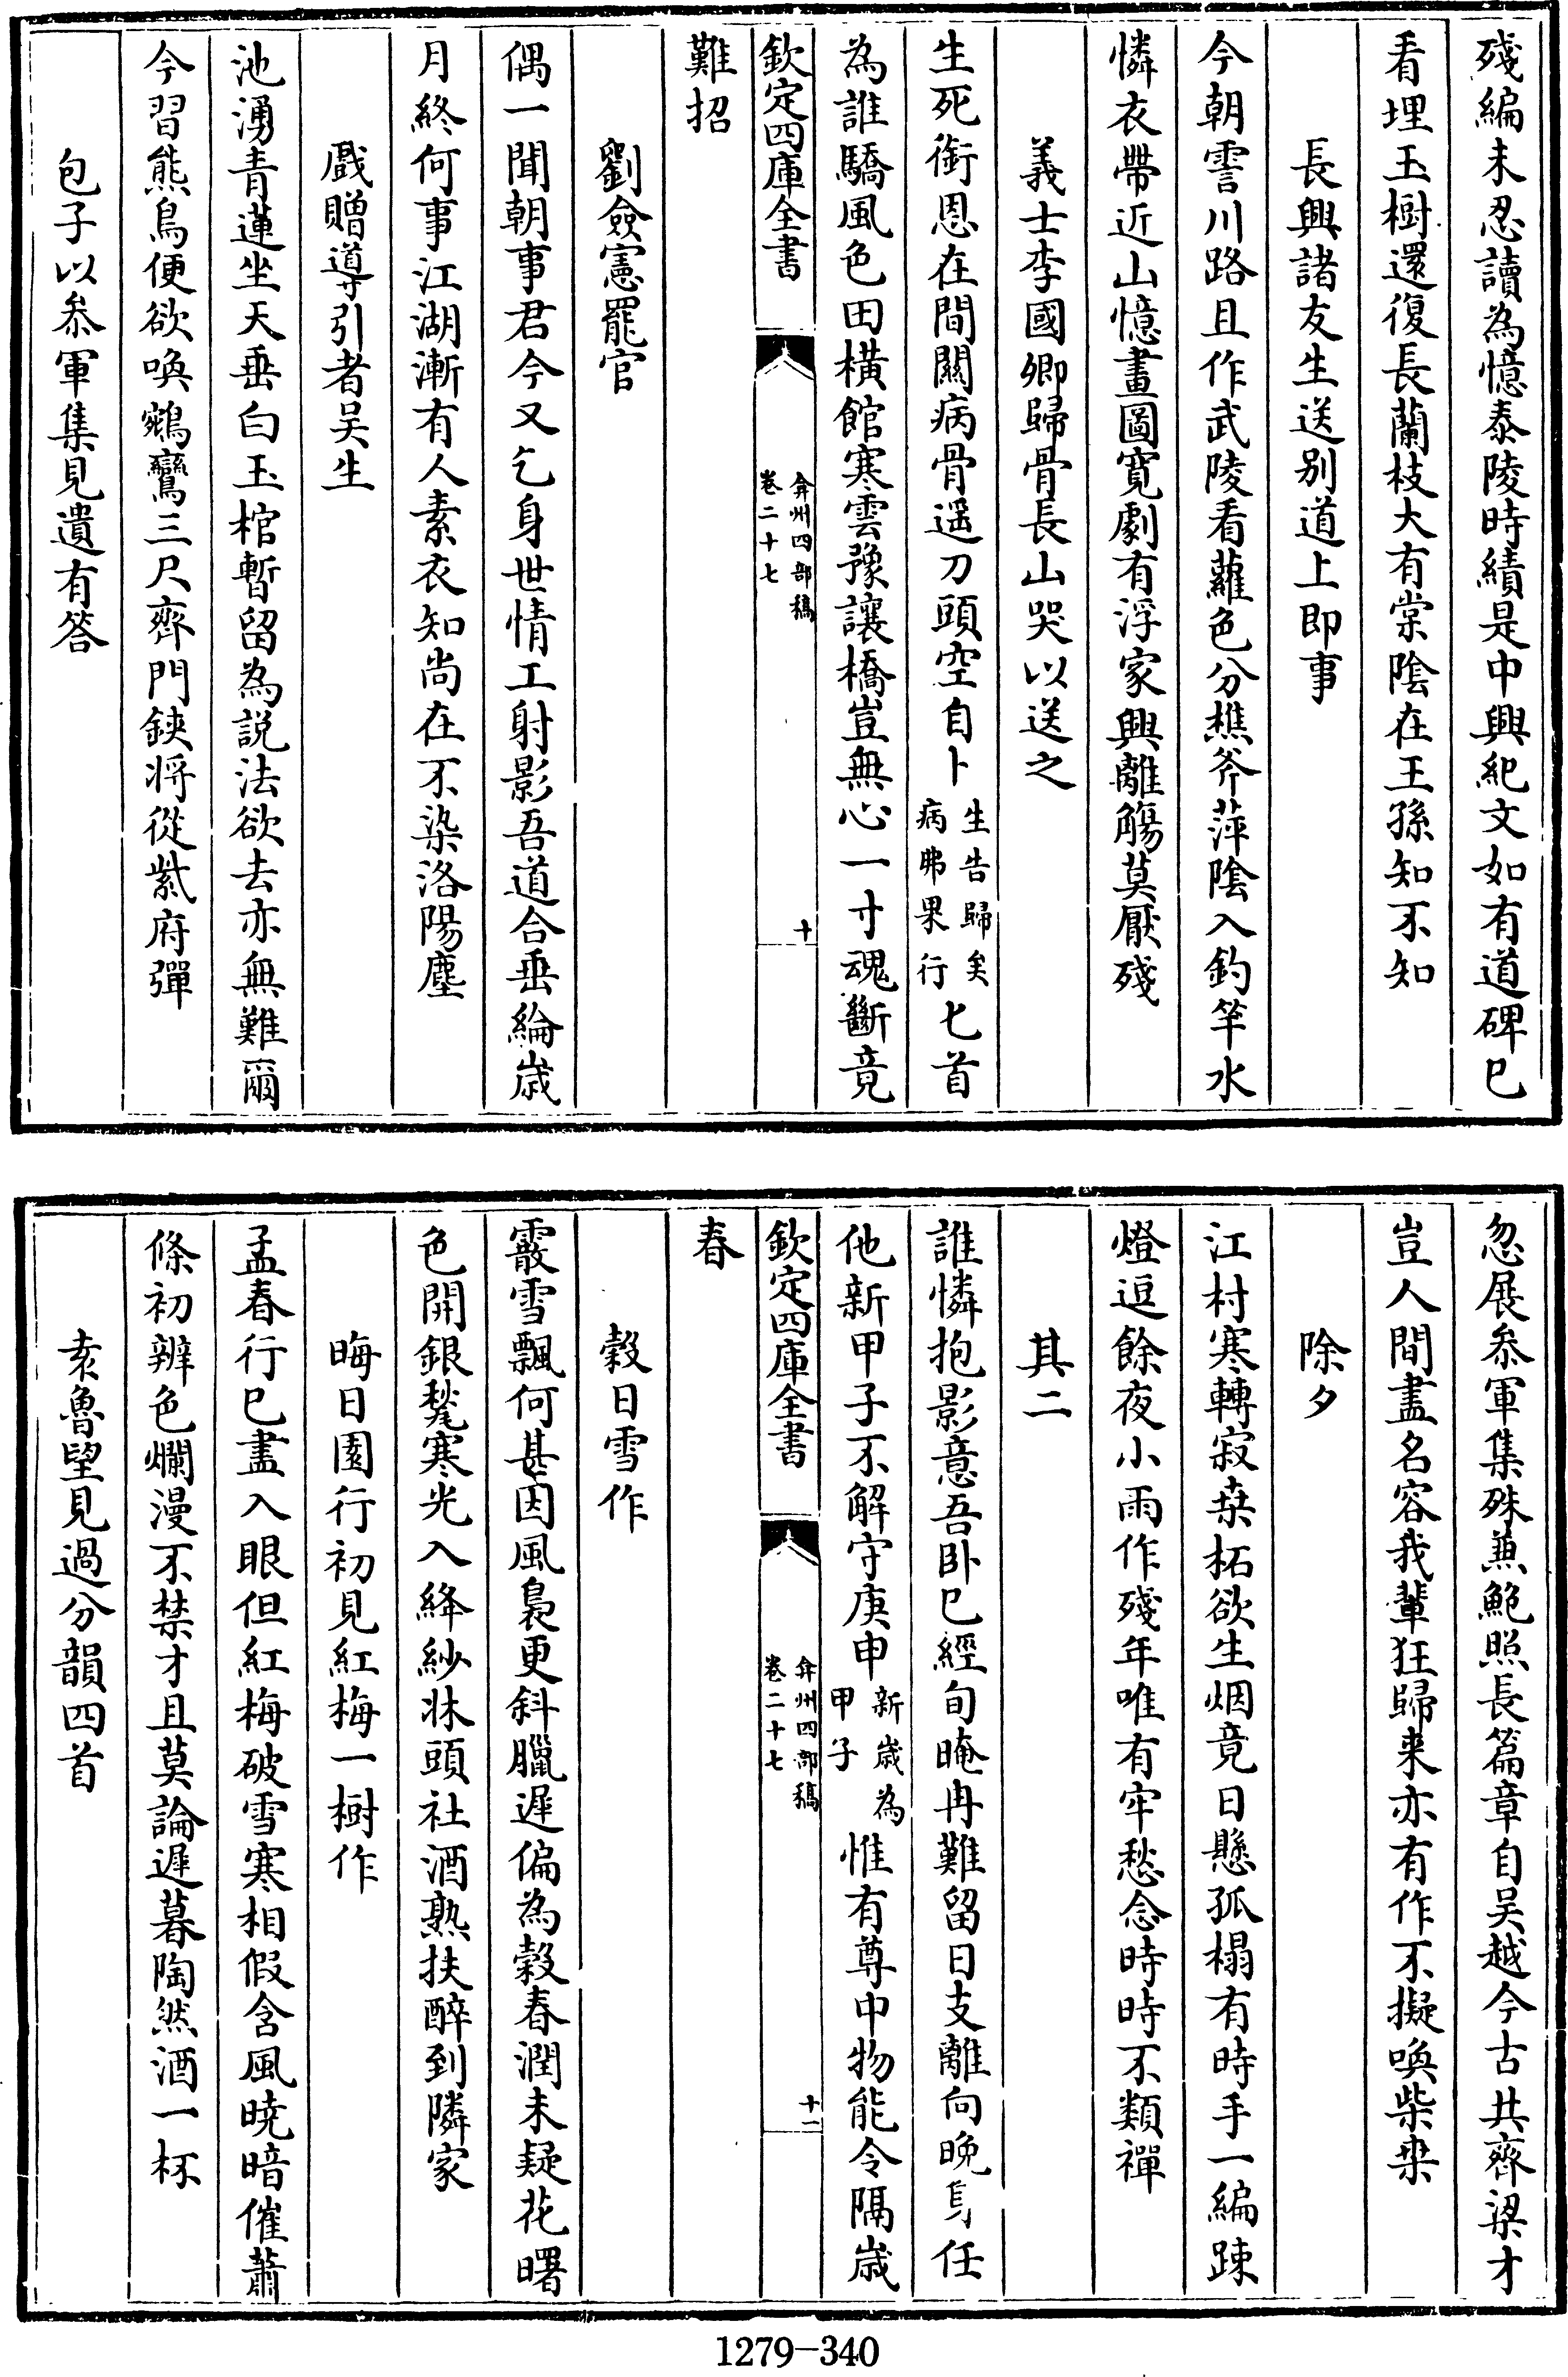 殘編未忍讀為憶泰陵時績是中興紀文如有道碑已
看埋玉樹還復長蘭枝大有棠陰在王孫知不知
長興諸友生送别道上即事
今朝霅川路且作武陵看蘿色分樵斧萍陰入釣竿水
憐衣帶近山憶畫圖寬劇有浮家興離觴莫厭殘
義士李國卿歸骨長山哭以送之
生死銜恩在間關病骨遥刀頭空自卜生告歸矣病弗果行匕首
為誰驕風色田橫館寒雲豫讓橋豈無心一寸魂斷竟
欽定四庫全書
弇州四部稿
卷二十七
十
難招
劉僉憲罷官
偶一聞朝事君今又乞身世情工射影吾道合垂綸歲
月終何事江湖漸有人素衣知尚在不染洛陽塵
戲贈導引者吴生
池湧青蓮坐天垂白玉棺暫留為説法欲去亦無難爾
今習熊鳥便欲喚鵷鸞三尺齊門鋏将從紫府彈
包子以叅軍集見遺有答
忽展叅軍集殊無鮑照長篇章自吴越今古共齊梁才
豈人間盡名容我輩狂歸来亦有作不擬喚柴桑
除夕
江村寒轉寂桑柘欲生烟竟日懸孤榻有時手一編踈
燈逗餘夜小雨作殘年唯有牢愁念時時不類禪
其二
誰憐抱影意吾卧已經旬晻冉難留日支離向晚身任
他新甲子不解守庚申新歲為甲子惟有尊中物能令隔歲
欽定四庫全書
弇州四部稿
卷二十七
十一
春
榖日雪作
霰雪飄何甚因風裊更斜臘遲偏為榖春潤未疑花曙
色開銀甃寒光入絳紗牀頭社酒熟扶醉到隣家
晦日園行初見紅梅一樹作
孟春行已盡入眼但紅梅破雪寒相假含風曉暗催蕭
條初辨色爛漫不禁才且莫論遲暮陶然酒一杯
袁魯望見過分韻四首
1279-340